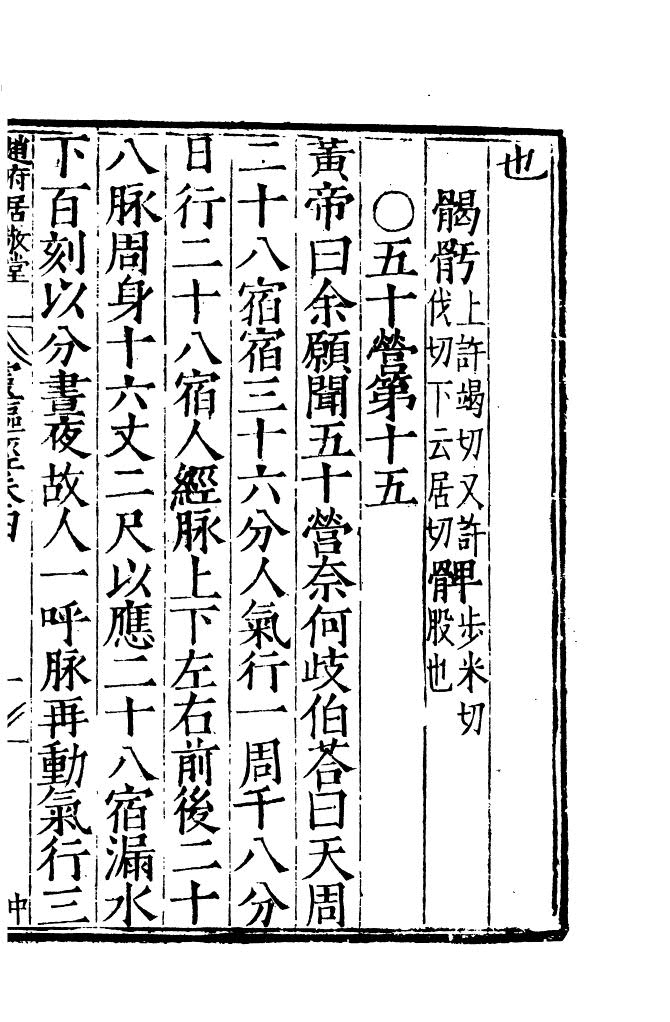 也
𩩲骬上許竭切又許伐切下云居切髀步米切股也
○五十營第十五
黃帝曰余願聞五十營奈何歧伯荅曰天周
二十八宿宿三十六分人氣行一周千八分
日行二十八宿人經脉上下左右前後二十
八脉周身十六丈二尺以應二十八宿漏水
下百刻以分晝夜故人一呼脉再動氣行三
趙府居敬堂